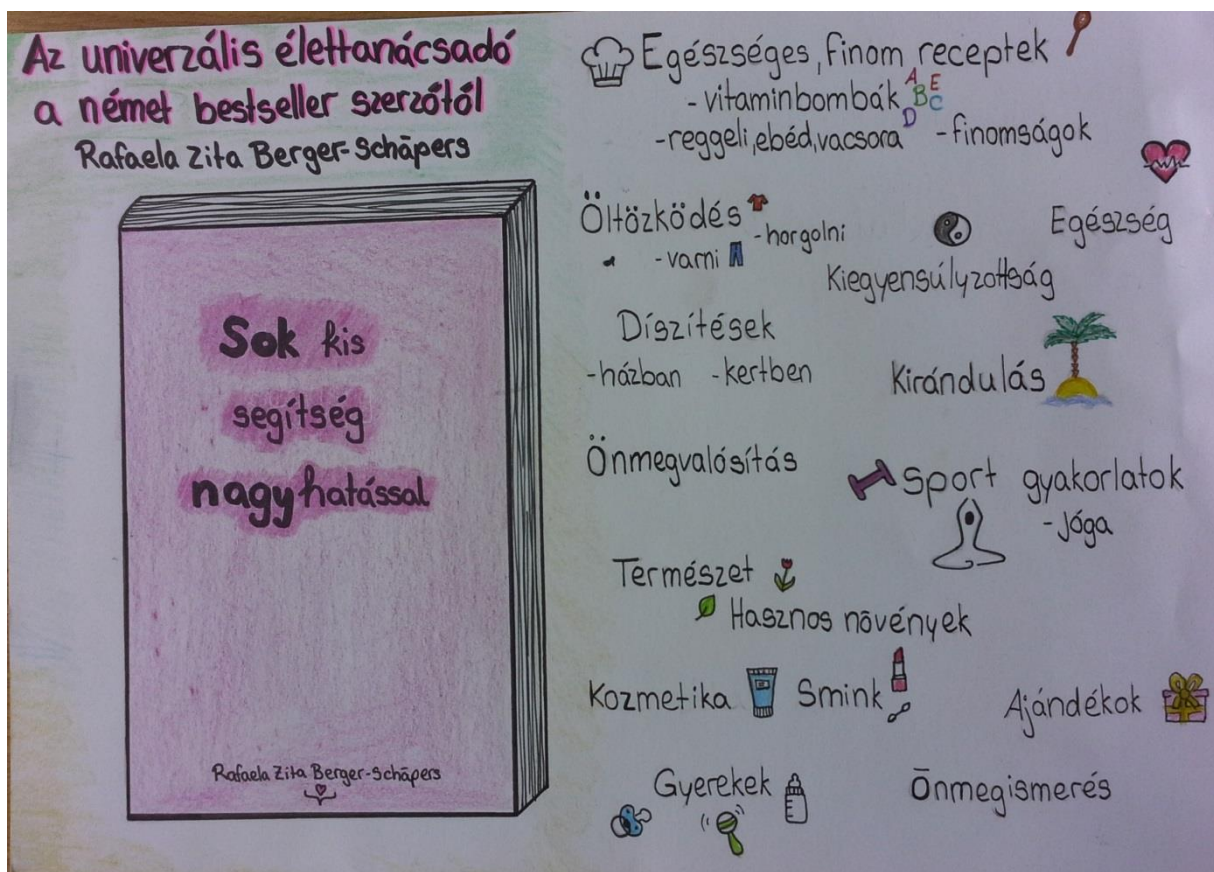 Az univerzális élettanácsadó
a német bestseller szerzőtől
Rafaela Zita Berger-Schäpers
Sok kis
segítség
nagy hatással
Rafaela Zita Berger-Schäpers
Egészséges, finom receptek
- vitaminbombák A B C D E
- reggeli, ebéd, vacsora - finomságok
Öltözködés
- horgolni
- varrni
Egészség
Kiegyensúlyzottság
Díszítések
- házban - kertben
Kirándulás
Önmegvalósítás
Sport gyakorlatok
- jóga
Természet
Hasznos növények
Kozmetika Smink
Ajándékok
Gyerekek
Önmegismerés